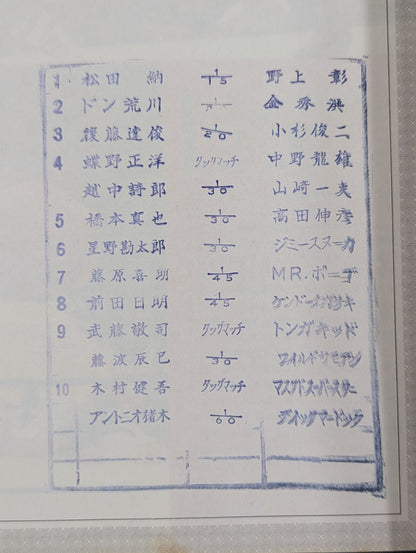 1 松田 納 1/15 野上 彰
2 ドン荒川 金秀洪
3 後藤達俊 1/20 小杉俊二
4 蝶野正洋 タッグマッチ 中野龍雄
越中詩郎 1/30 山崎一夫
5 橋本真也 1/30 高田伸彦
6 星野勘太郎 1/30 ジミースヌーカ
7 藤原喜明 1/45 MR.ポーゴ
8 前田日明 1/45 ケンドーナガサキ
9 武藤敬司 タッグマッチ トンガキッド
藤波辰巳 1/30 ワイルドサモアン
10 木村健吾 タッグマッチ マスクドスーパースター
アントニオ猪木 1/60 ディックマードック